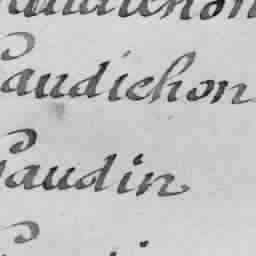 Gaudichon
Gaudichon
Gaudin